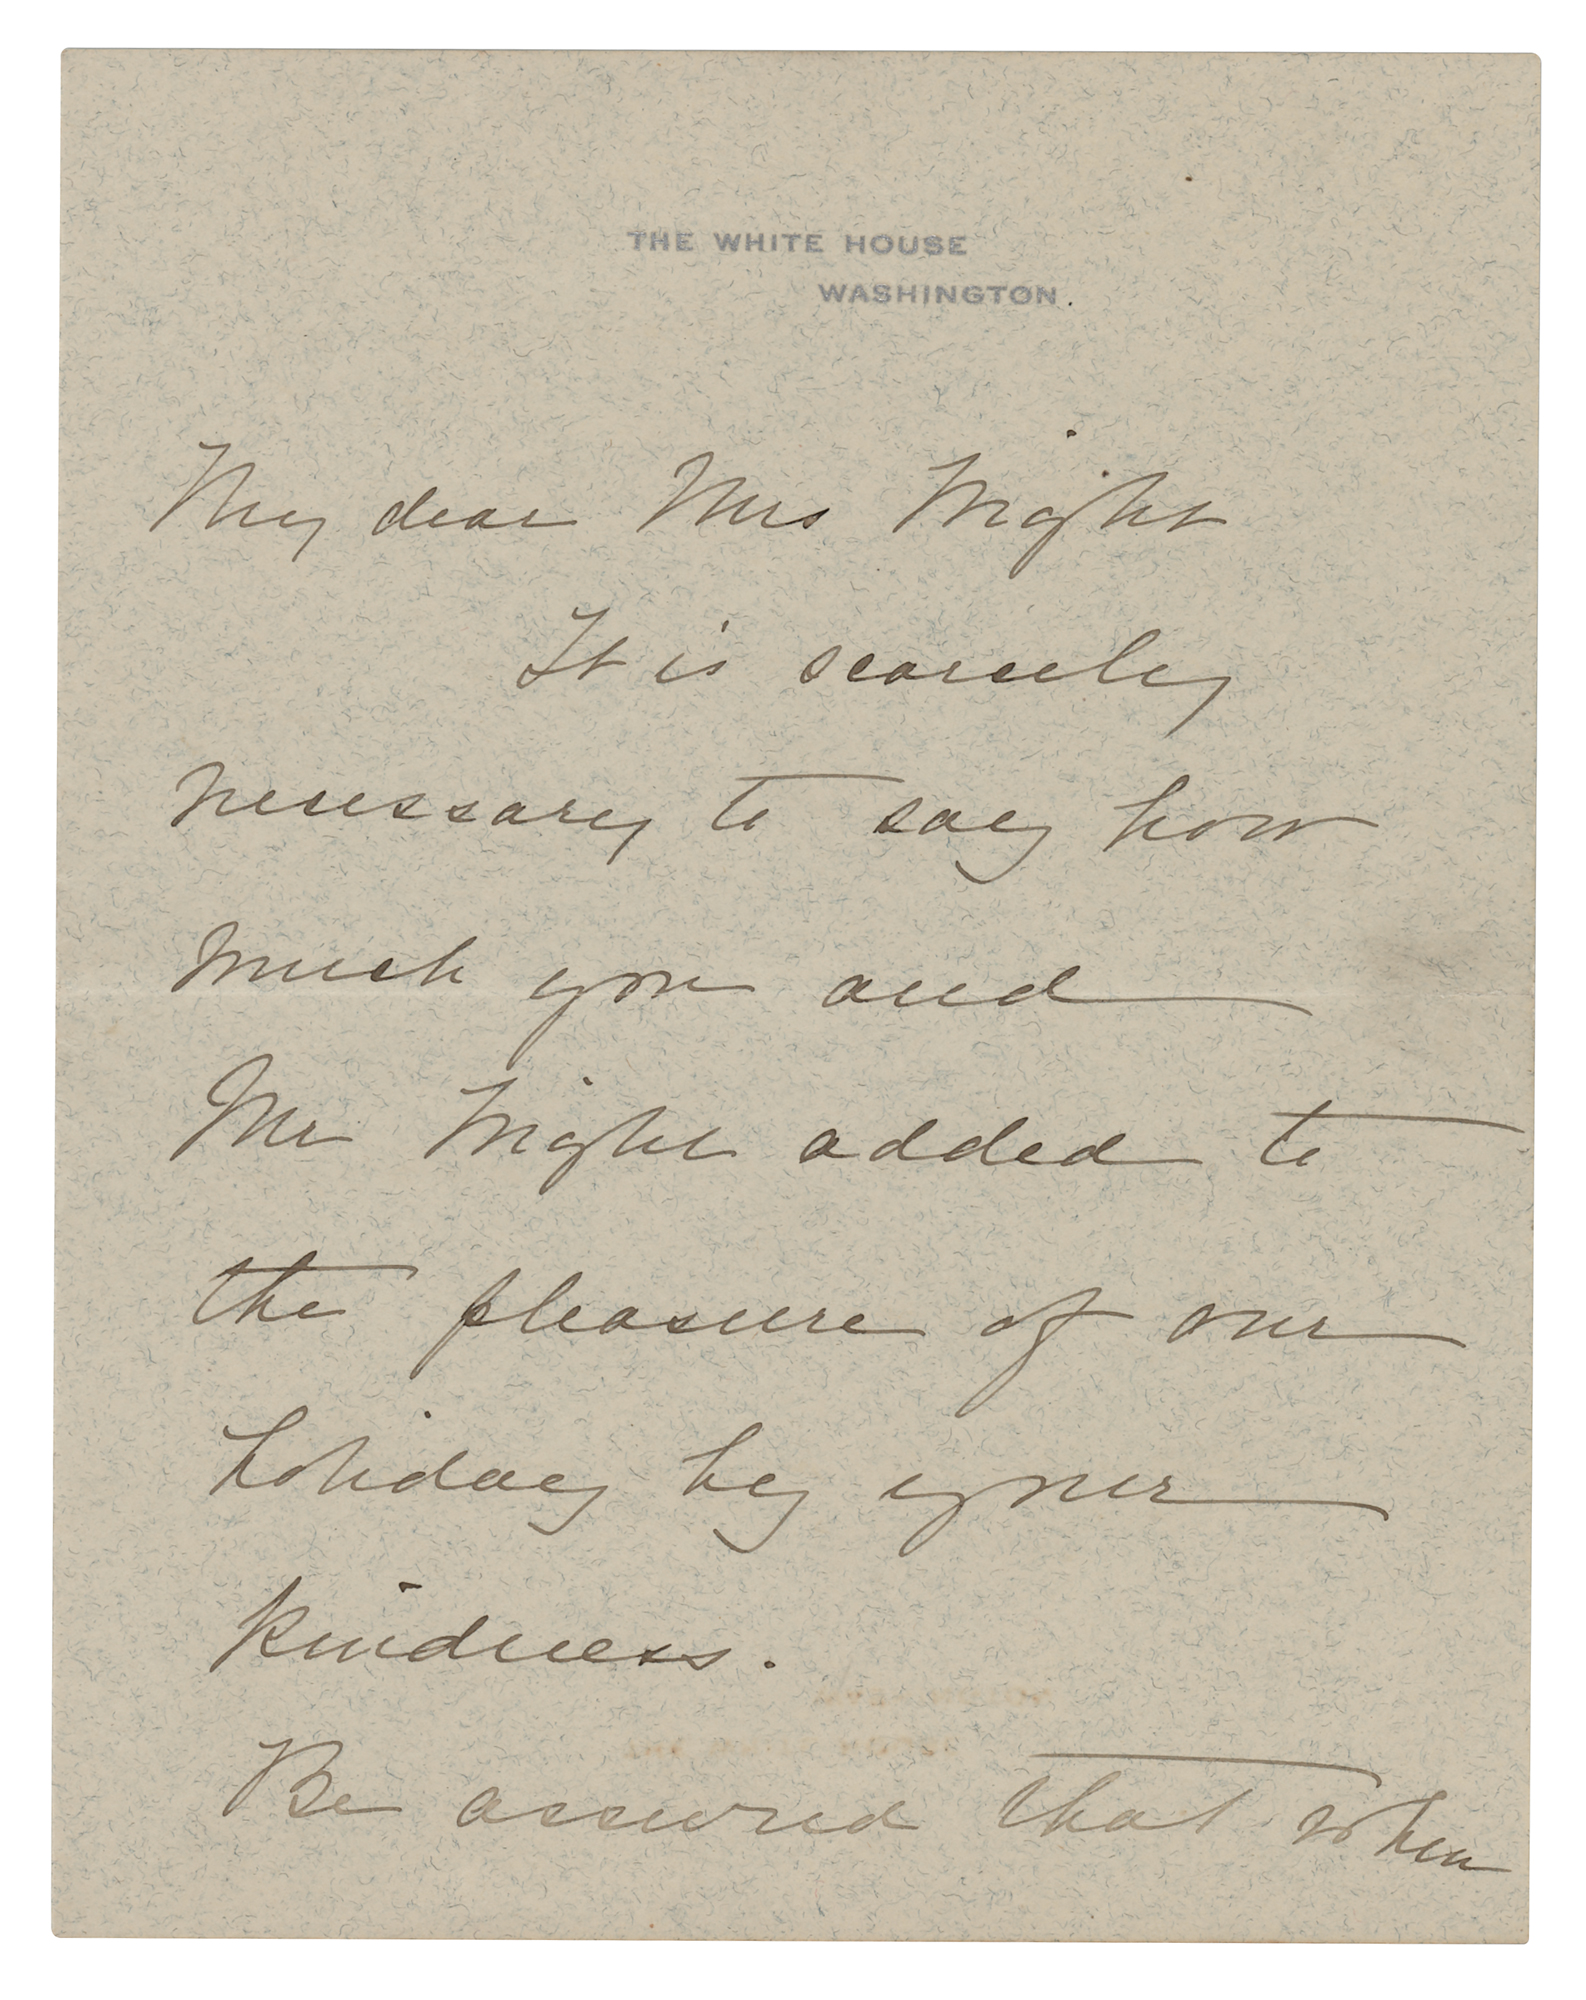 THE WHITE HOUSE
WASHINGTON.
My dear Mrs Wright
It is scarcely
necessary to say how
much you and
Mr Wright added to
the pleasure of our
holiday by your
kindness.
Be assured that when